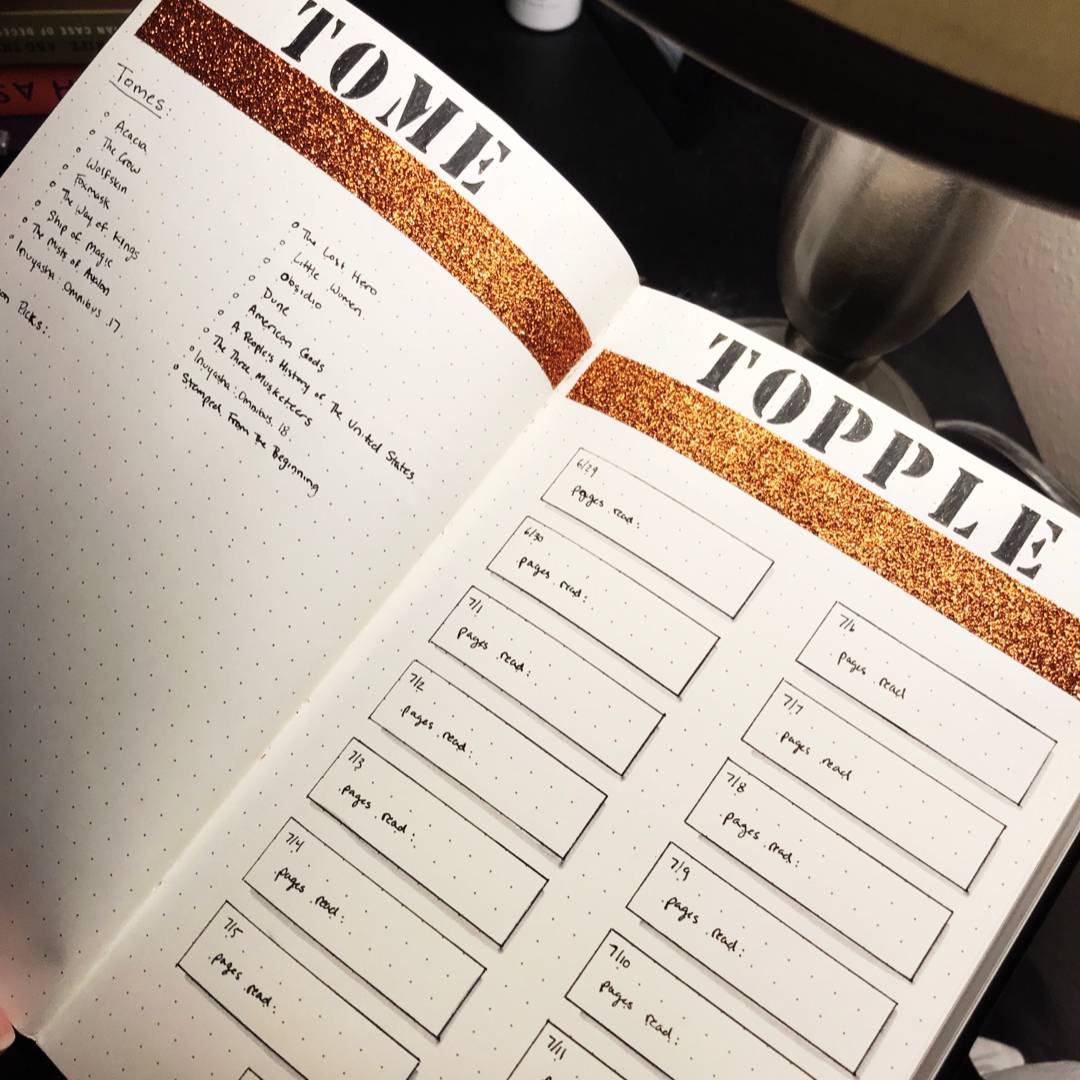 TOME
Tomes:
Acacia
The Crow
Wolfskin
Foxmask
The Way of Kings
Ship of Magic
The Mists of Avalon
Inuyasha: Omnibus 17
Picks:
The Lost Hero
Little Women
Obsidio
Dune
American Gods
A People's History of The United States
The Three Musketeers
Inuyasha: Omnibus 18
Stamped From The Beginning
TOPPLE
6/29
pages read:
6/30
pages read:
7/1
pages read:
7/2
pages read:
7/3
pages read:
7/4
pages read:
7/5
pages read:
7/6
pages read
7/7
pages read
7/8
pages read:
7/9
pages read:
7/10
pages read:
7/11